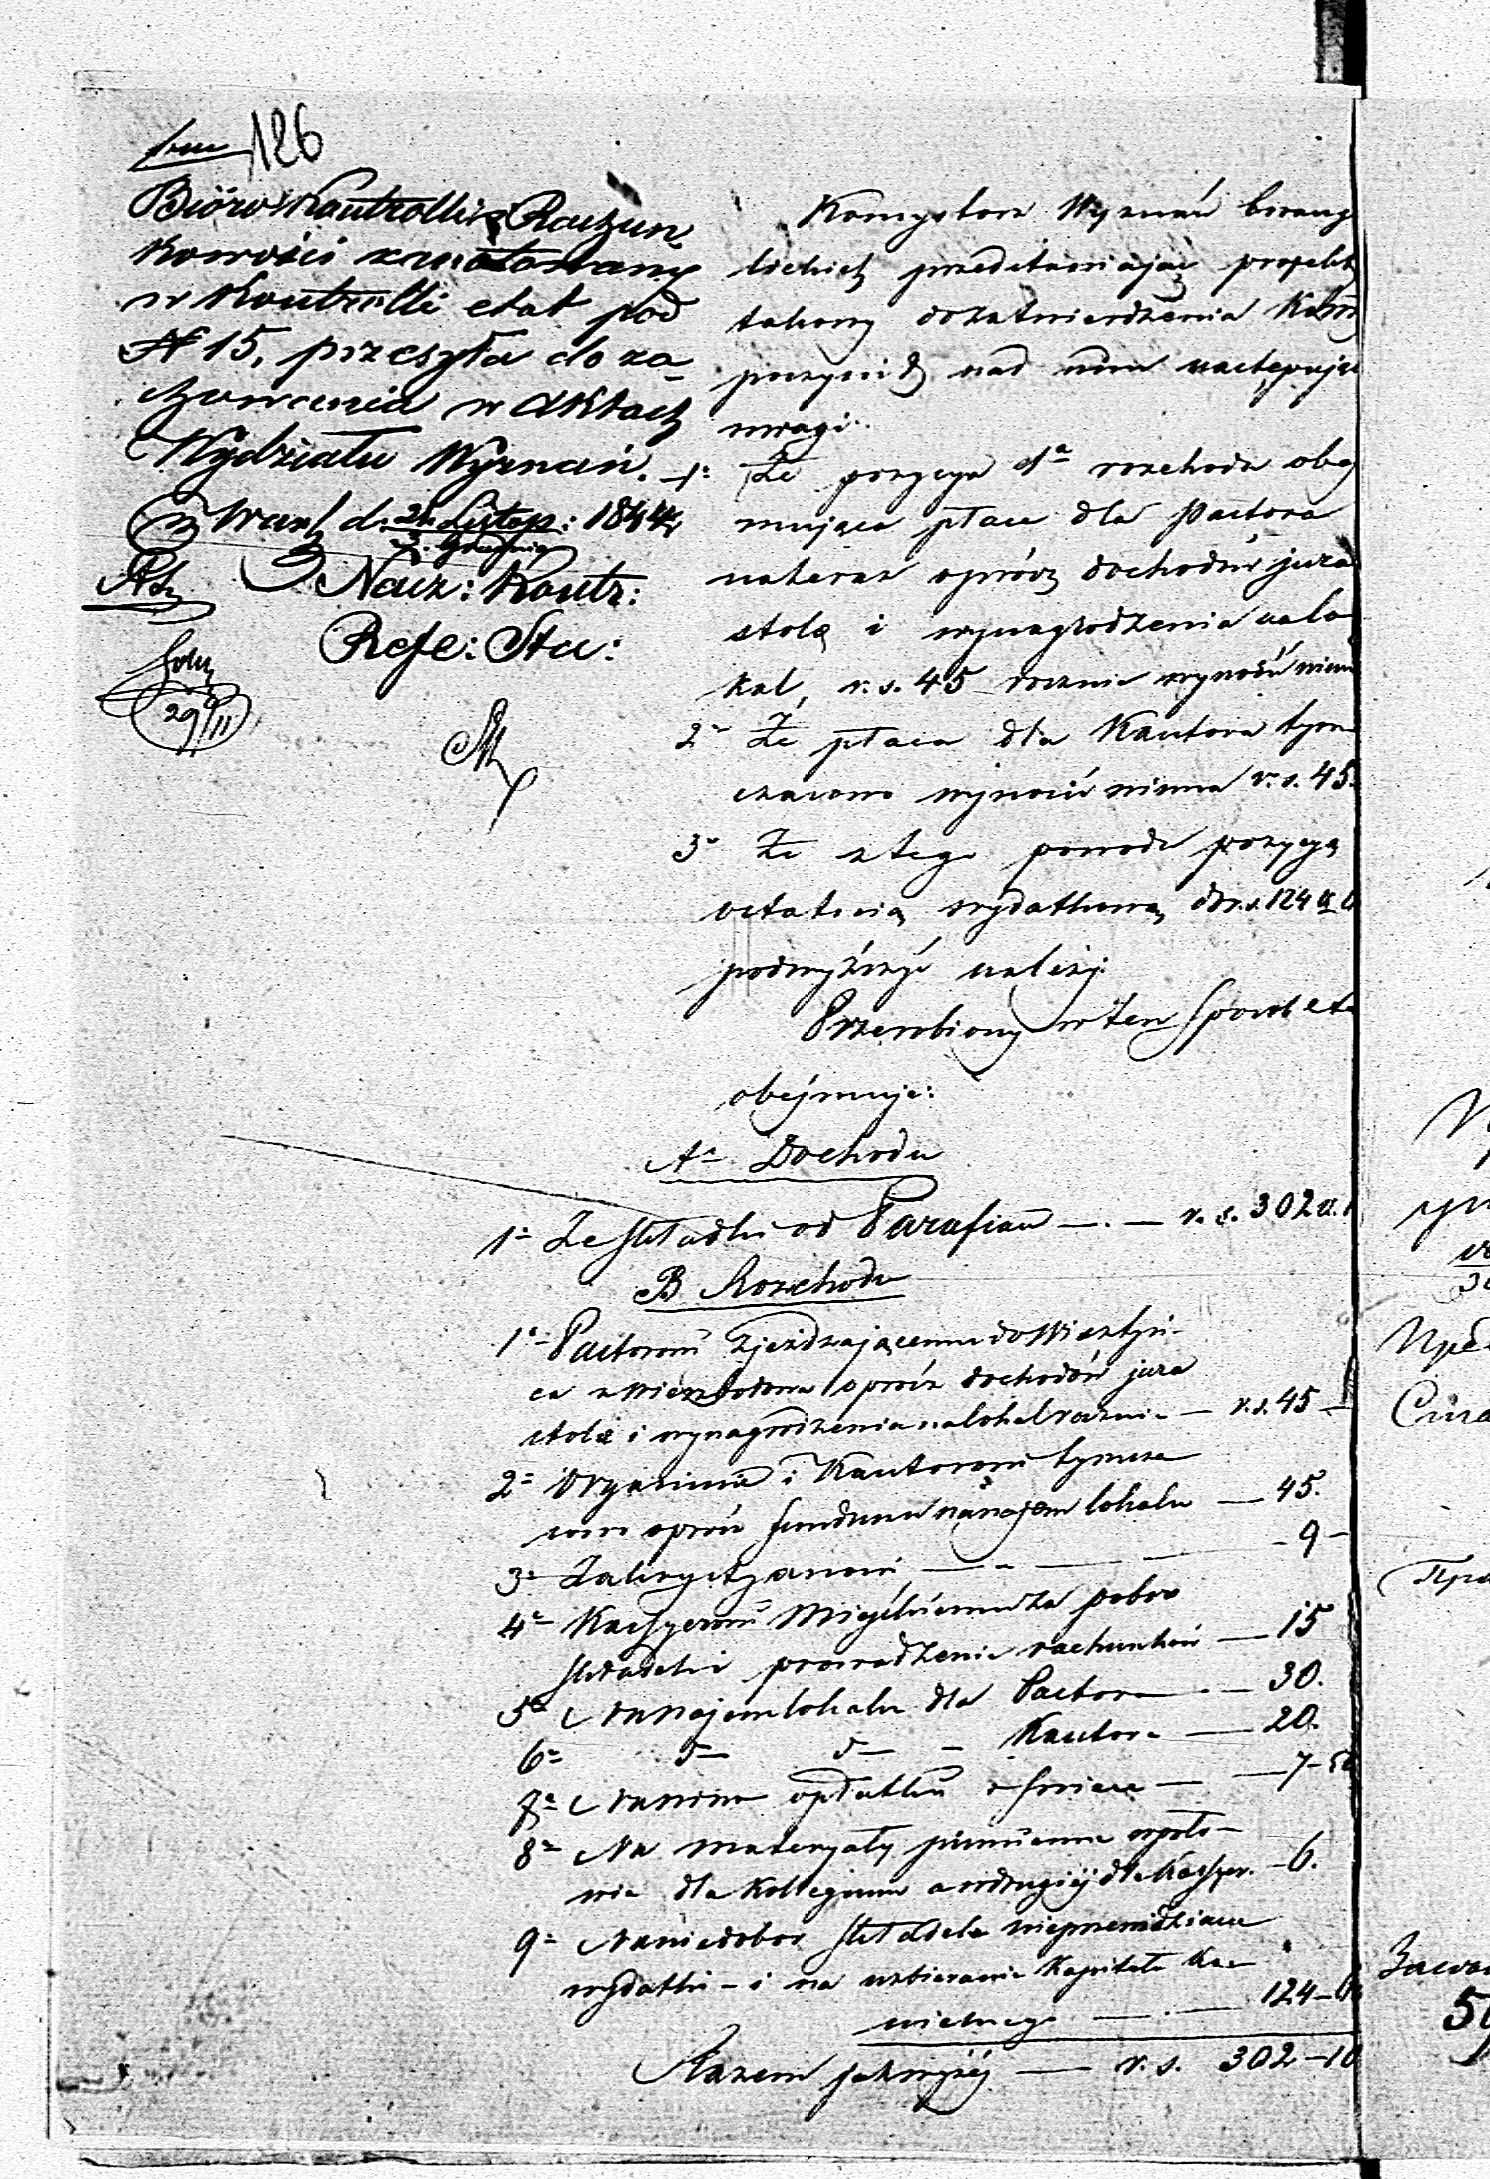 126
Biöro Kontrolli i Rachun
kowości zanotowany
w Kontrolli etat pod
N 15, przesyła do za
chowania w Aktach
Wydziału Wyznań.
Warsz d. Listop: 1844
Grudnia
Nacz: Kontr:
Refe: Sta:
29/11
Konsystorz Wyznań Ewang
lickich przedstawiając projekt
takowy do zatwierdzenia
poczynił nad nim następuju
uwagi:
1° Że pozycya 1a rozchodu obej
mująca płacę dla Pastora
nateraz oprócz dochodów jura
stolæ i wynagrodzenia na lo
kal, r. s. 45 rocznie wynosić winna
2° Że płaca dla Kantora tym
czasowo wynosić winna r. s. 45.
3° Że z tego powodu pozycyą
ostatnią wydatkową do r. s. 124
podwyższyć należy.
Przerobiony w ten sposób eta
obejmuje:
A° Dochodu
1° Ze składki od Parafian — . — r. s. 302
B Rozchodu
1° Pastorowi zjeżdżającemu do
ca z oprócz dochodów jura
stolæ i wynagrodzenia na lokal rocznie — r. s. 45 —
2° Organiście i Kantorowi tymcza
sowo oprócz funduszu na najem lokalu — 45.
3° Zakrystyanowi — 9 —
4° Kassyerowi Miejskiemu za pobor
składki i prowadzenie rachunków — 15
5° Na najem lokalu dla Pastora — 30.
6° d— d— — Kantora — 20.
7° Na wino opłatki i świece — 7 – 50
8° Na materyały piśmienne w poło-
wie dla Kollegium a w drugiej dla Kassyer. – 6.
9° Na niedobor składek nieprzewidziane
wydatki – i na uzbieranie Kapitału
124 –
Razem jak wyżej — r. s. 302 – 10